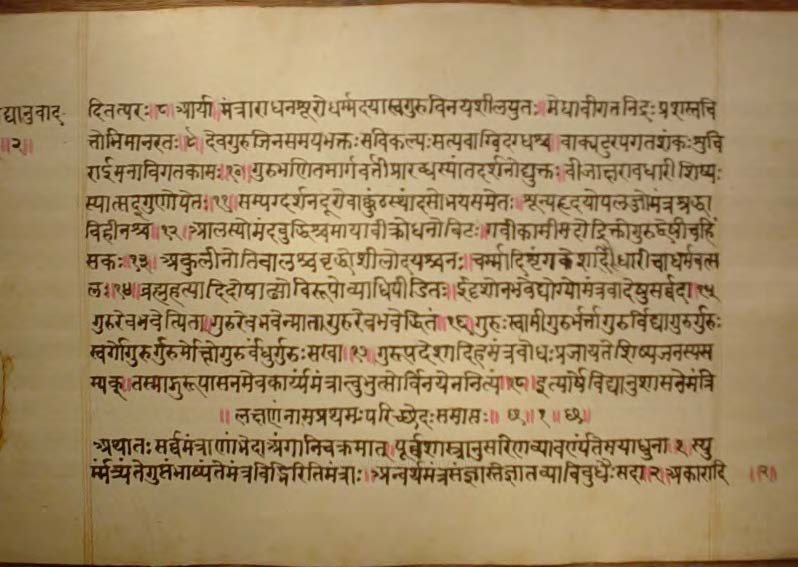 द्यानुवाद
॥२॥
दितत्परः॥८॥आर्यी मंत्राराधनशूरोधर्म्मदयास्वगुरुविनयशीलयुतः॥मेधावीगतनिद्रःप्रशस्तचि
त्तोभिमानरतः॥९॥देवगुरुजिनसमयभक्तःसविकल्पःसत्यवाग्विदग्धश्च॥वाक्पटुरपगतशंकःशुचि
रार्द्रमनाविगतकामः॥१०॥गुरुभणितमार्गवर्तीप्रारब्धस्यांतदर्शनोद्युक्तः॥बीजाक्षरावधारीशिष्यः
स्यात्सद्गुणोपेतः॥११॥सम्यग्दर्शनदूरोवाक्कुंठस्थांदसोभयसमेतः॥शून्यहृदयोपलज्जोमंत्रश्रद्धा
विहीनश्च॥१२॥आलस्योमंदबुद्धिश्चमायावीक्रोधनोविटः॥गर्वीकामीमदोद्रिक्तोगुरुद्वेषीचहिं
सकः॥१३॥अकुलीनोतिबालश्चवृद्धोशीलोदयश्चनः॥चर्म्मादिशृंगकेशादिधारीचाधर्मवत्स
लः॥१४॥ब्रह्महत्यादिदोषाढ्योविरूपोव्याधिपीडितः॥ईदृशोनभवेद्योग्योमंत्रवादेषुसर्व्वदा॥१५॥
गुरुरेवभवेत्पिता॥गुरुरेवभवेन्माता॥गुरुरेवभवेद्धितं॥१६॥गुरुःस्वामीगुरुर्भर्त्तागुरुर्विद्यागुरुर्गुरुः
स्वर्गोगुरुर्गुरुर्मोक्षोगुरुर्बंधुर्गुरुःसखा॥१७॥गुरूपदेशादिहमंत्रबोधःप्रजायतेशिष्यजनस्यस
म्यक्॥तस्माद्गुरूपासनमेवकार्य्यंमंत्रान्बुभुत्सोर्विनयेननित्यं॥१८॥इत्यार्षेविद्यानुशासनेमंत्रि
॥लक्षणंनामप्रथमःपरिच्छेदःसमाप्तः॥छ॥१॥छ॥
अथातःसर्व्वमंत्राणांभेदाअंगानिचक्रमात्॥पूर्व्वशास्त्रानुसारेणव्यावर्ण्यंतेमयाधुना॥१॥स्यु
र्म्मंत्र्यंतेगुप्तंभाष्यंतेमंत्रविद्भिरितिमंत्राः॥अन्वर्थमंत्रसंज्ञास्तेज्ञातव्याविबुधैःसदा॥२॥अकारादि
॥२॥